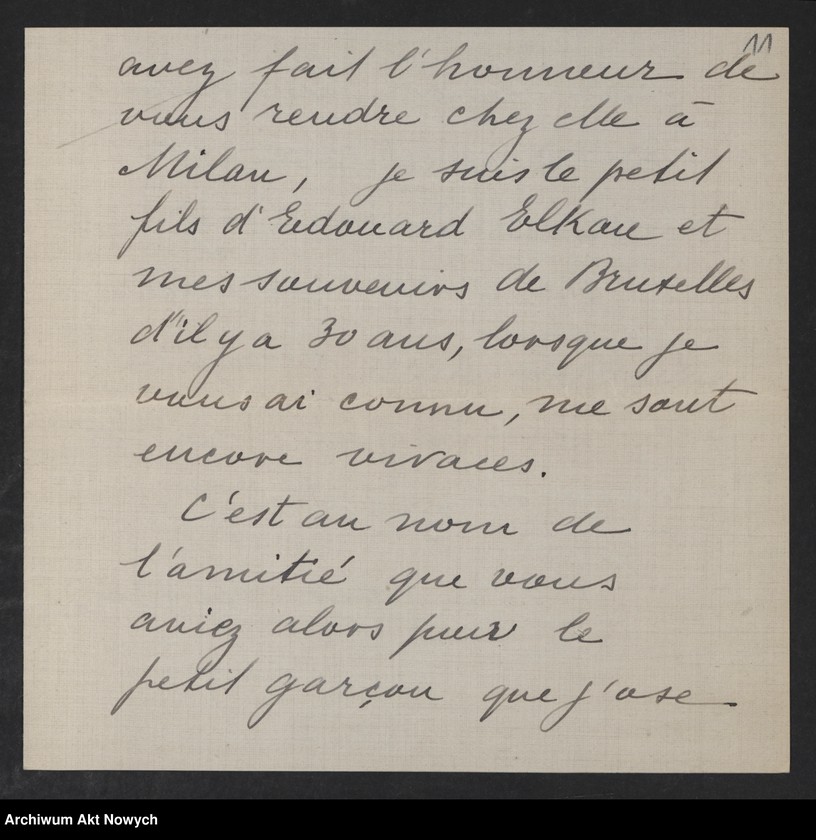 11
avez fait l'honneur de
vous rendre chez elle à
Milan, je suis le petit
fils d'Edouard Elkan et
mes souvenirs de Bruxelles
d'il y a 30 ans, lorsque je
vous ai connu, me sont
encore vivaces.
C'est au nom de
l'amitié que vous
aviez alors pour le
petit garçon que j'ose
Archiwum Akt Nowych